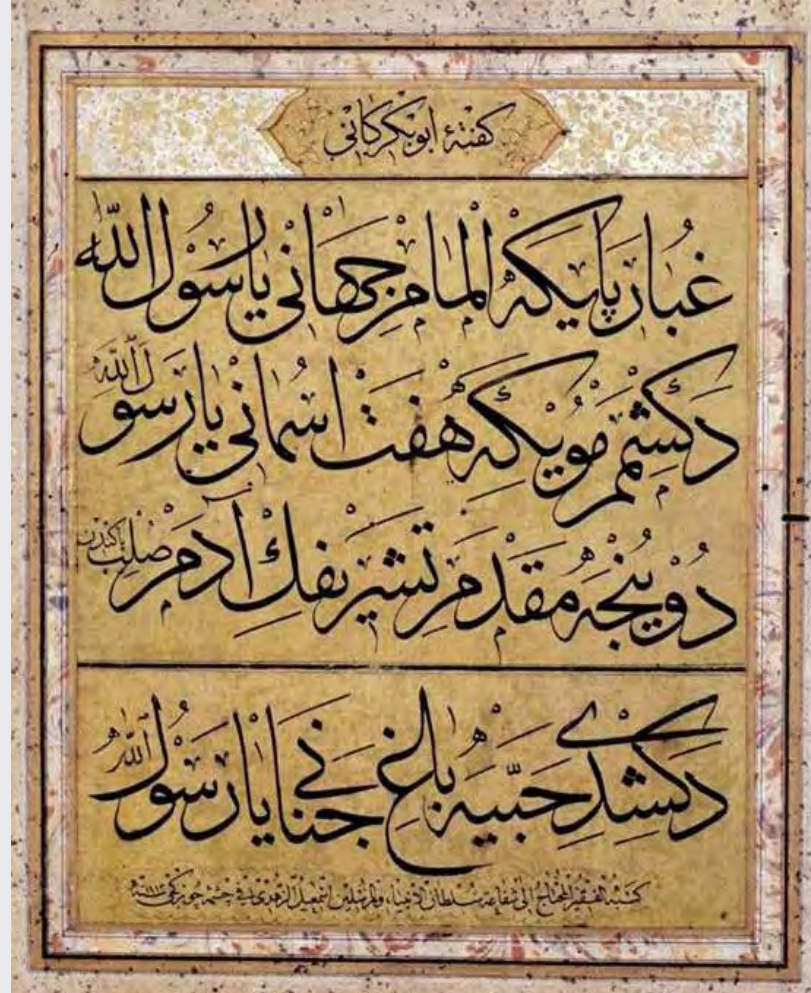 كفتهٔ ابوبكر كانى
غبار پايكه المام جهانى يا رسول الله
دكشمم مويكه هفت اسمانى يا رسول الله
دوينجه مقدم تشريفك آدم صلب پاكندن
دكشدى حبيه باغ جنانى يا رسول الله
كتبه الفقير المحتاج الى شفاعة سلطان الانبياء والمرسلين اسمعيل الزهدى فى